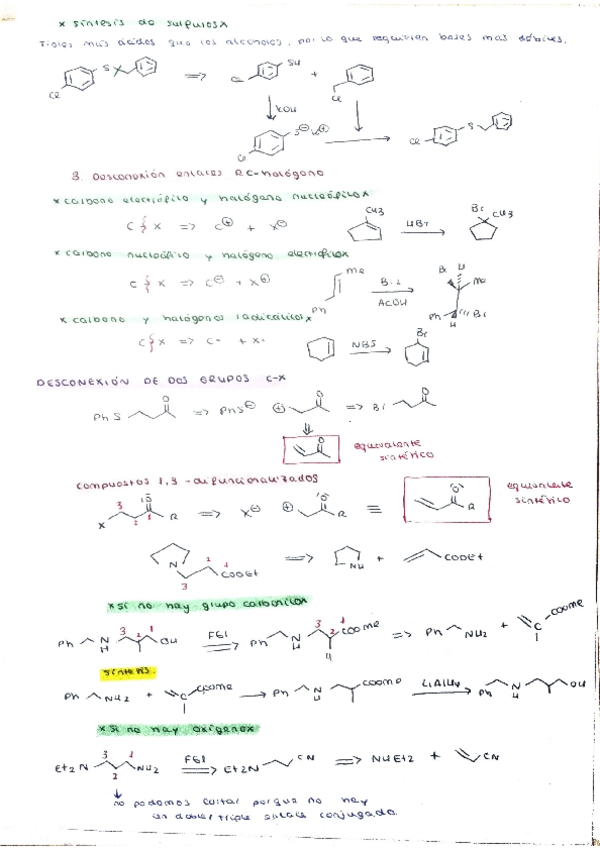 * síntesis de sulfuros *
Tioles más ácidos que los alcoholes, por lo que requieren bases más débiles.
S
Cl
⇒
SH
Cl
+
Cl
KOH
S⊖ K⊕
Cl
S
Cl
3. Desconexión enlaces RC-halógeno
* carbono electrófilo y halógeno nucleófilo *
C X ⇒ C⊕ + X⊖
CH3
HBr
Br
CH3
* carbono nucleófilo y halógeno electrófilo *
C X ⇒ C⊖ + X⊕
Me
Ph
Br2
ACOH
Br H
Me
Ph Br
H
* carbono y halógenos radicálicos *
C X ⇒ C· + X·
NBS
Br
DESCONEXIÓN DE DOS GRUPOS C-X
PhS O ⇒ PhS⊖ ⊕ O ⇒ Br O
O
equivalente
sintético
compuestos 1,3-difuncionalizados
3 2 1
X O R ⇒ X⊖ ⊕ O R ≡ O R
equivalente
sintético
N 3 2 1 COOEt ⇒ NH + COOEt
* si no hay grupo carbonilo *
Ph N H 3 2 1 OH FGI Ph N H 3 2 1 COOMe ⇒ Ph NH2 + COOMe
síntesis.
Ph NH2 + COOMe → Ph N H COOMe LiAlH4 Ph N H OH
* si no hay oxígeno *
Et2N 3 2 1 NH2 FGI Et2N CN ⇒ NHEt2 + CN
no podemos cortar porque no hay
un doble/triple enlace conjugado.